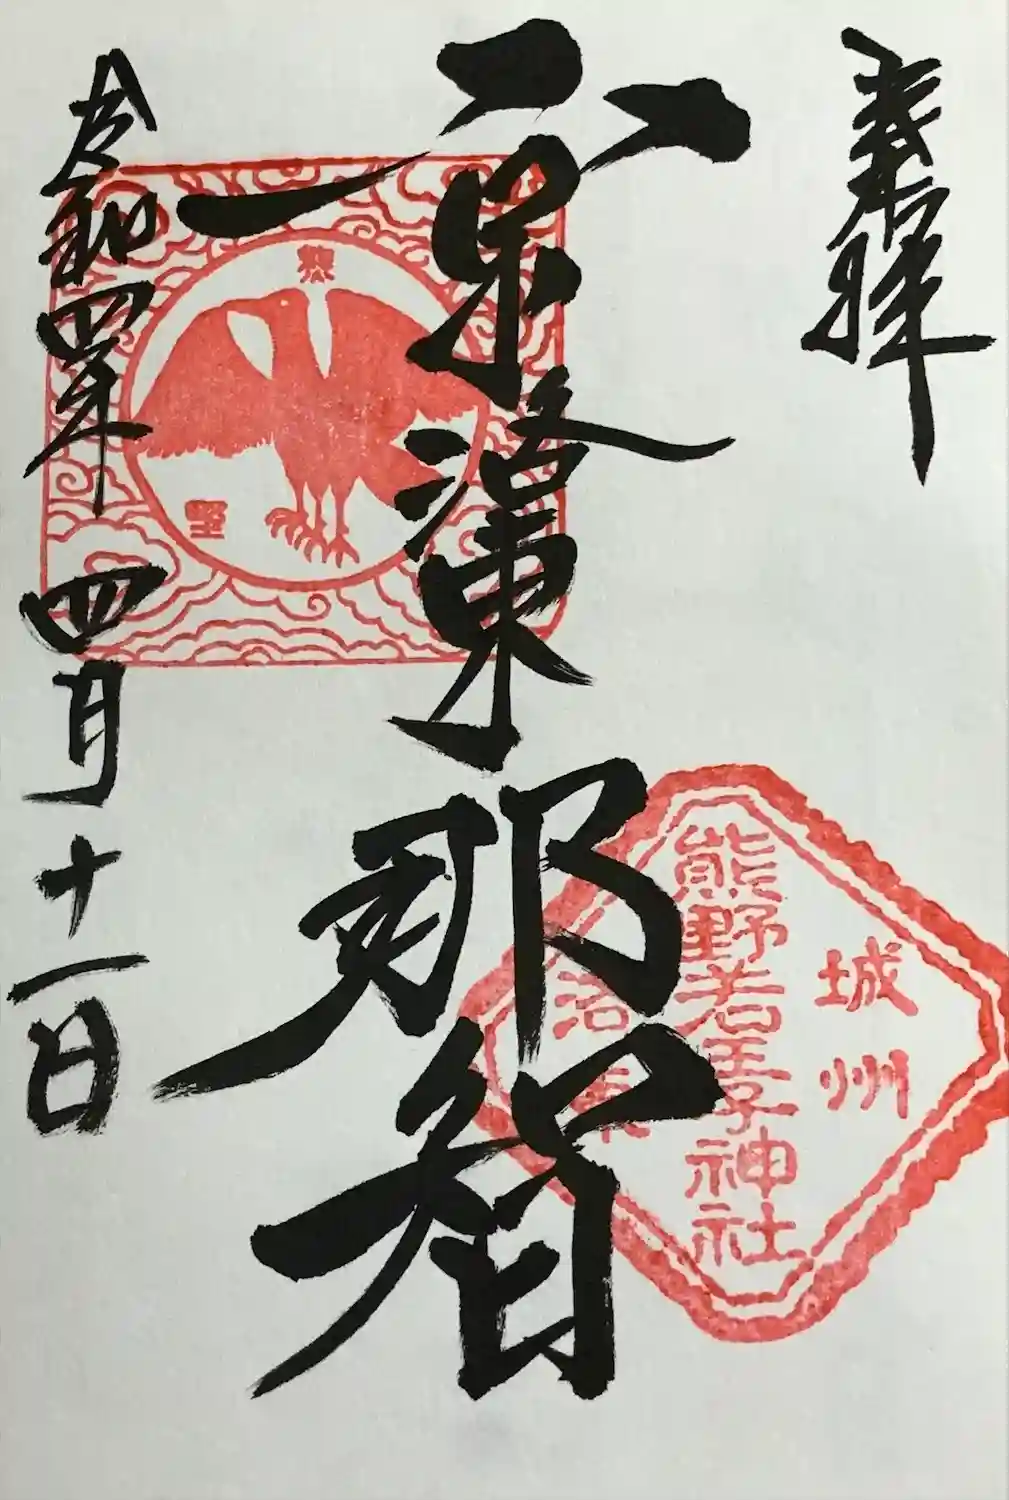 奉拝
京洛東那智
令和四年四月十一日
熊野
城州
熊野若王子神社
洛東